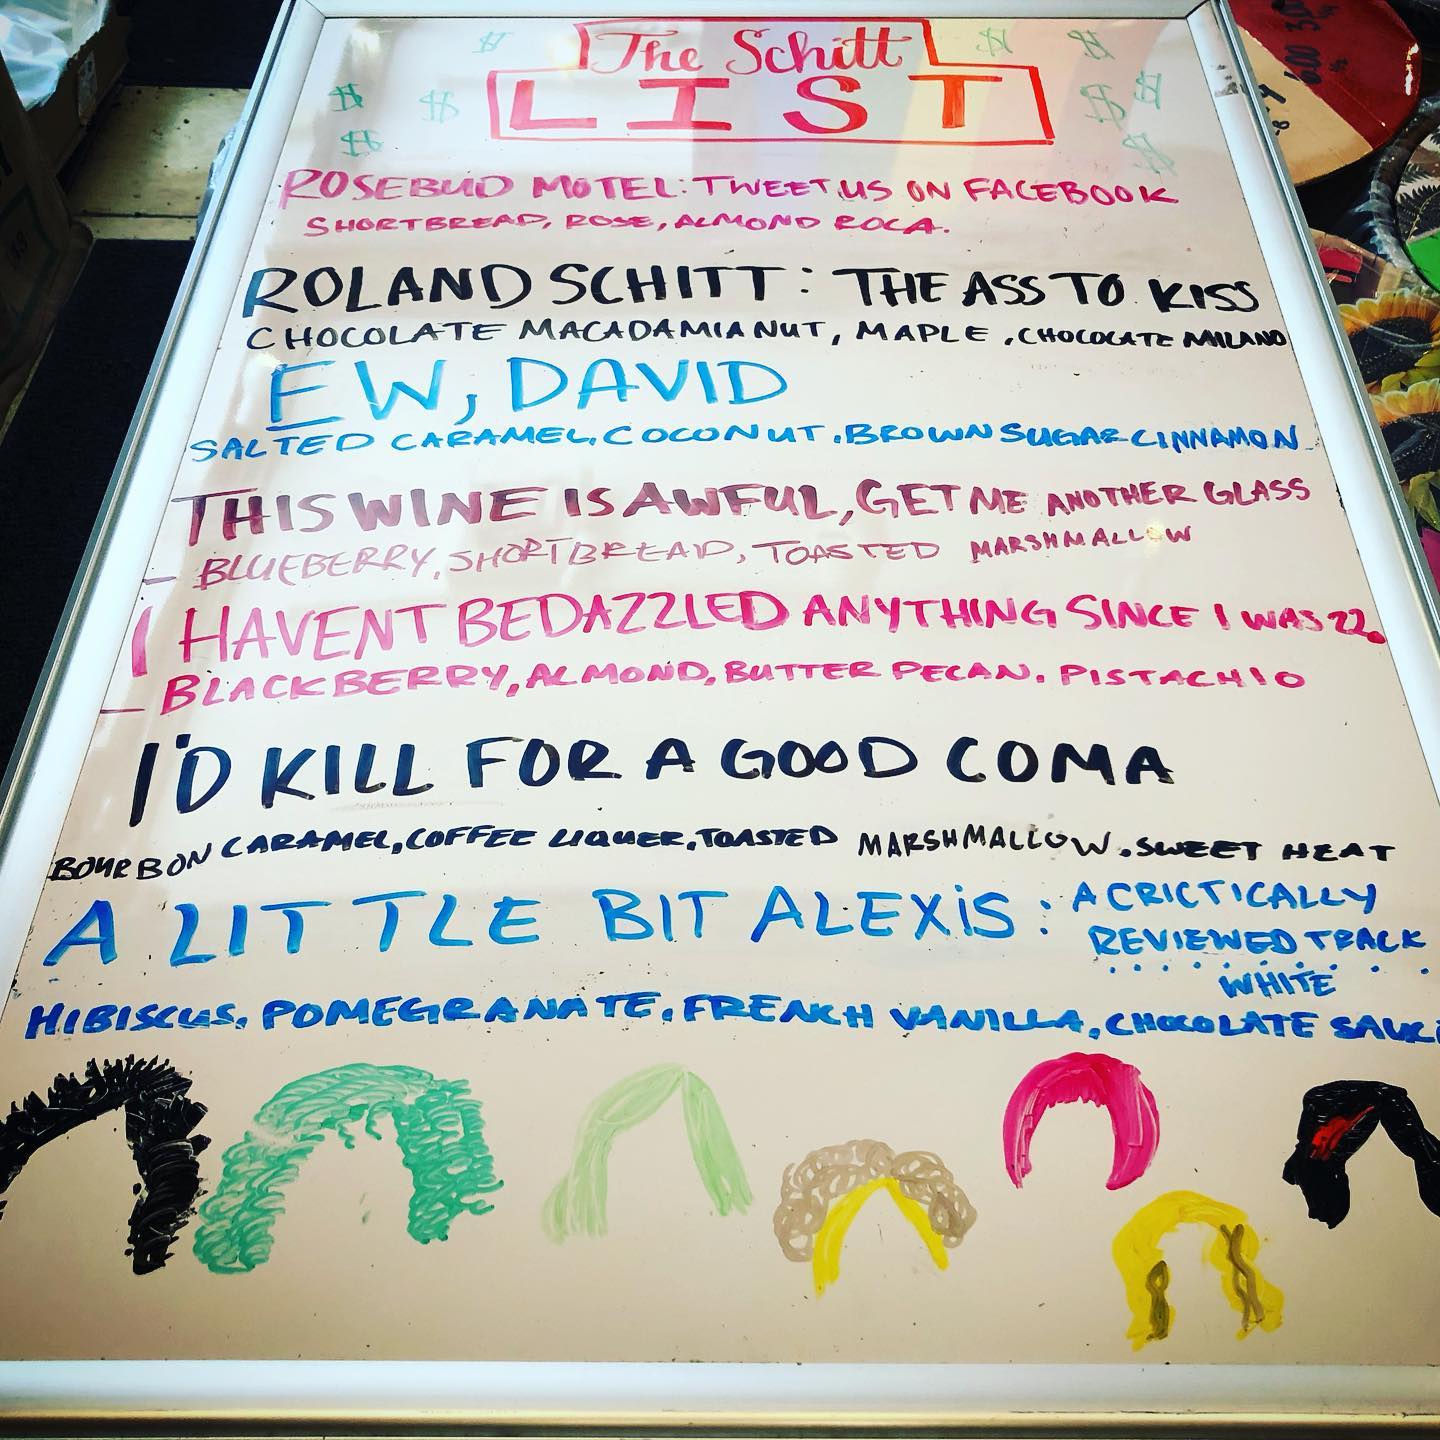 The Schitt
LIST
ROSEBUD MOTEL: TWEET US ON FACEBOOK
SHORTBREAD, ROSE, ALMOND ROCA.
ROLAND SCHITT: THE ASS TO KISS
CHOCOLATE MACADAMIA NUT, MAPLE, CHOCOLATE MILANO
EW, DAVID
SALTED CARAMEL, COCONUT, BROWN SUGAR CINNAMON
THIS WINE IS AWFUL, GET ME ANOTHER GLASS
- BLUEBERRY, SHORTBREAD, TOASTED MARSHMALLOW
I HAVENT BEDAZZLED ANYTHING SINCE I WAS 22.
- BLACKBERRY, ALMOND, BUTTER PECAN, PISTACHIO
I'D KILL FOR A GOOD COMA
BOURBON CARAMEL, COFFEE LIQUER, TOASTED MARSHMALLOW, SWEET HEAT
A LITTLE BIT ALEXIS: A CRICTICALLY
REVIEWED TRACK
WHITE
HIBISCUS, POMEGRANATE, FRENCH VANILLA, CHOCOLATE